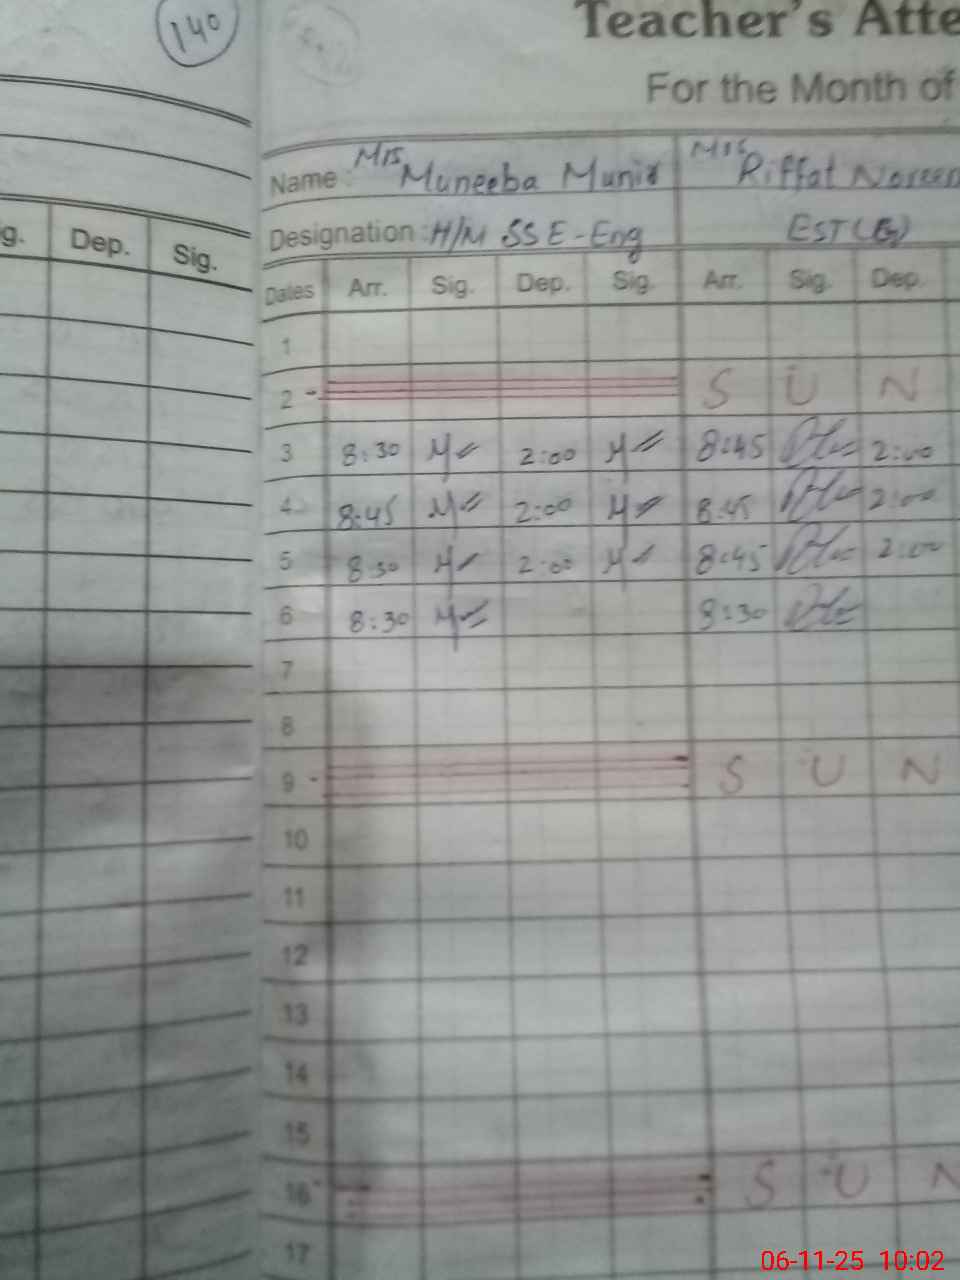 140
Teacher's Atte
For the Month of
Name: Mrs Muneeba Munir Mrs Riffat Noreen
Designation: H/M SSE-Eng EST(B)
g. Dep. Sig.
Dates Arr. Sig. Dep. Sig. Arr. Sig. Dep.
1
2 S U N
3 8:30 2:00 8:45 2:00
4 8:45 2:00 8:45 2:00
5 8:30 2:00 8:45 2:00
6 8:30 8:30
7
8
9 S U N
10
11
12
13
14
15
16 S U N
17
06-11-25 10:02